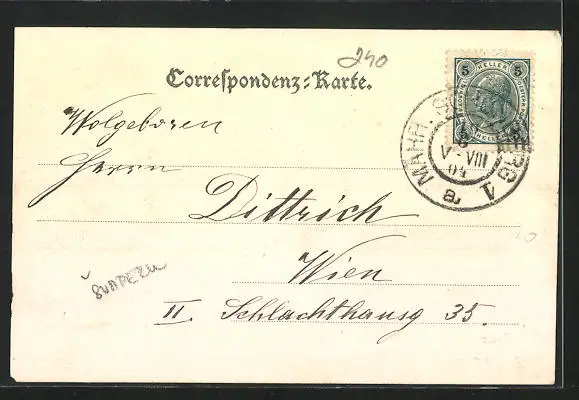 240
Correspondenz-Karte.
5 HELLER 5
MÄHR. SCHÖNBERG 1
V-VIII
04
a
Wolgeboren
Herrn
Dittrich
Wien
II. Schlachthausg 35.
10